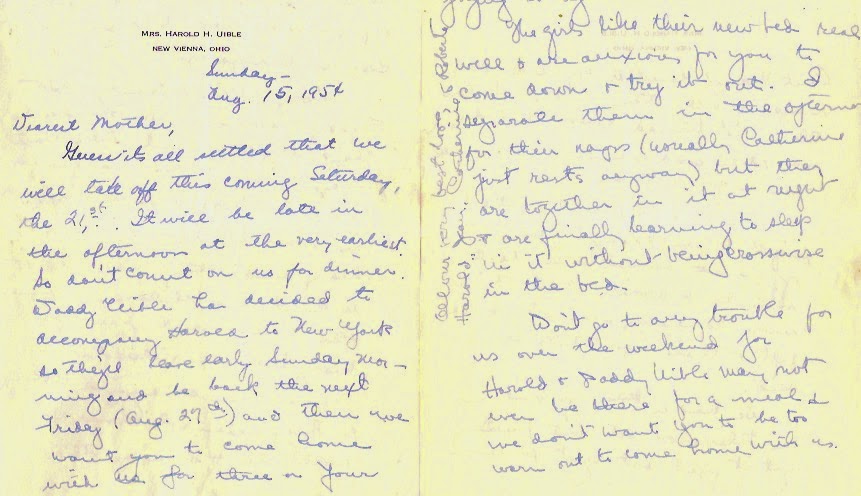 MRS. HAROLD H. UIBLE
NEW VIENNA, OHIO
Sunday -
Aug. 15, 1954
Dearest Mother,
Guess its all settled that we
will take off this coming Saturday,
the 21,st. It will be late in
the afternoon at the very earliest
so don't count on us for dinner.
Daddy Uible has decided to
accompany Harold to New York
so they'll leave early Sunday mor-
ning and be back the next
Friday (Aug. 27th) and then we
want you to come home
with us for three or four
The girls like their new bed real
well & are anxious for you to
come down & try it out. I
separate them in the
for their naps (usually Catherine
just rests anyway) but they
are together in it at night
& are finally learning to sleep
in it without being crosswise
in the bed.
Don't go to any trouble for
us over the weekend for
Harold & Daddy Uible may not
even be there for a meal &
we don't want you to be too
worn out to come home with us.
All our very best love,
Harold, Catherine & Roberta